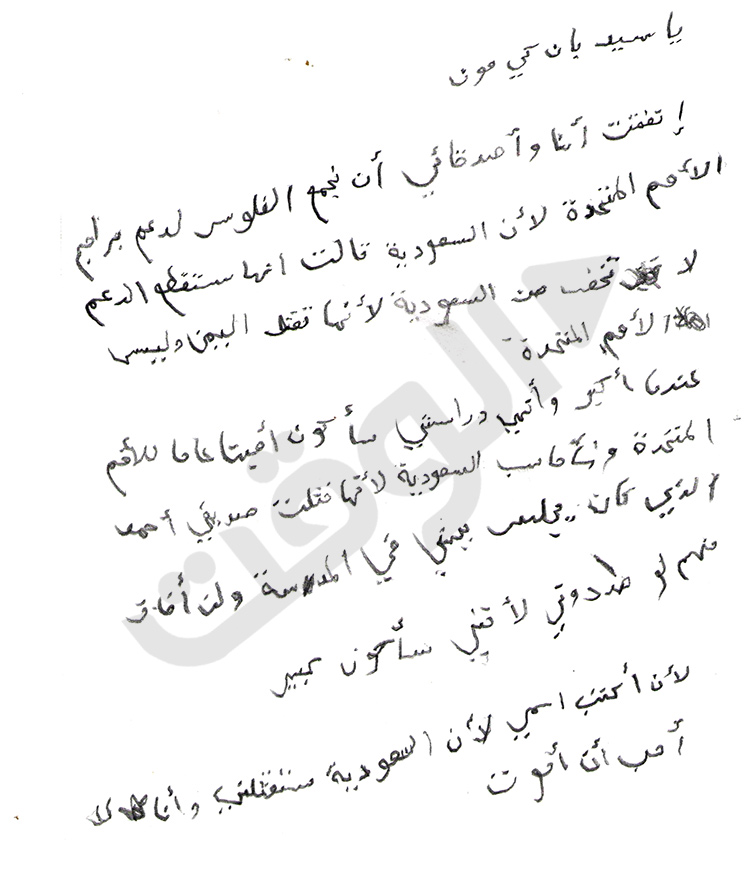 يا سيد بان كي مون
إتفقت أنا وأصدقائي أن نجمع الفلوس لدعم برامج
الأمم المتحدة لأن السعودية قالت انها ستقطع الدعم
لا تخف من السعودية لأنها تقتل اليمن وليس
الأمم المتحدة
عندما أكبر وأتمي دراستي سأكون أمينا عاما للأمم
المتحدة وسأحاسب السعودية لأنها قتلت صديقي أحمد
الذي كان يجلس بجنبي في المدرسة ولن أخاف
منهم لو هددوني لأنني سأكون كبير
لأن أكتب اسمي لأن السعودية ستقتلني وأنا لا
أحب أن أموت
الوقت